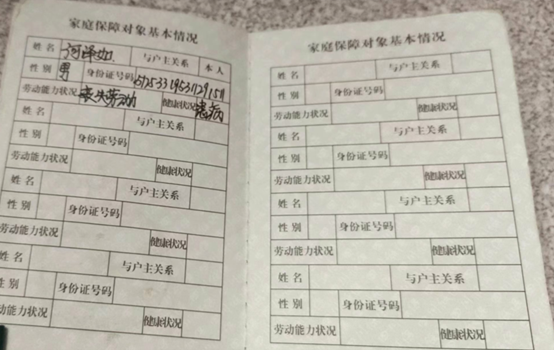 家庭保障对象基本情况
姓名 与户主关系 本人
性别 男 身份证号码
劳动能力状况 丧失劳动力 健康状况 患病
姓名 与户主关系
性别 身份证号码
劳动能力状况 健康状况
姓名 与户主关系
性别 身份证号码
劳动能力状况 健康状况
姓名 与户主关系
性别 身份证号码
劳动能力状况 健康状况
家庭保障对象基本情况
姓名 与户主关系
性别 身份证号码
劳动能力状况 健康状况
姓名 与户主关系
性别 身份证号码
劳动能力状况 健康状况
姓名 与户主关系
性别 身份证号码
劳动能力状况 健康状况
姓名 与户主关系
性别 身份证号码
劳动能力状况 健康状况